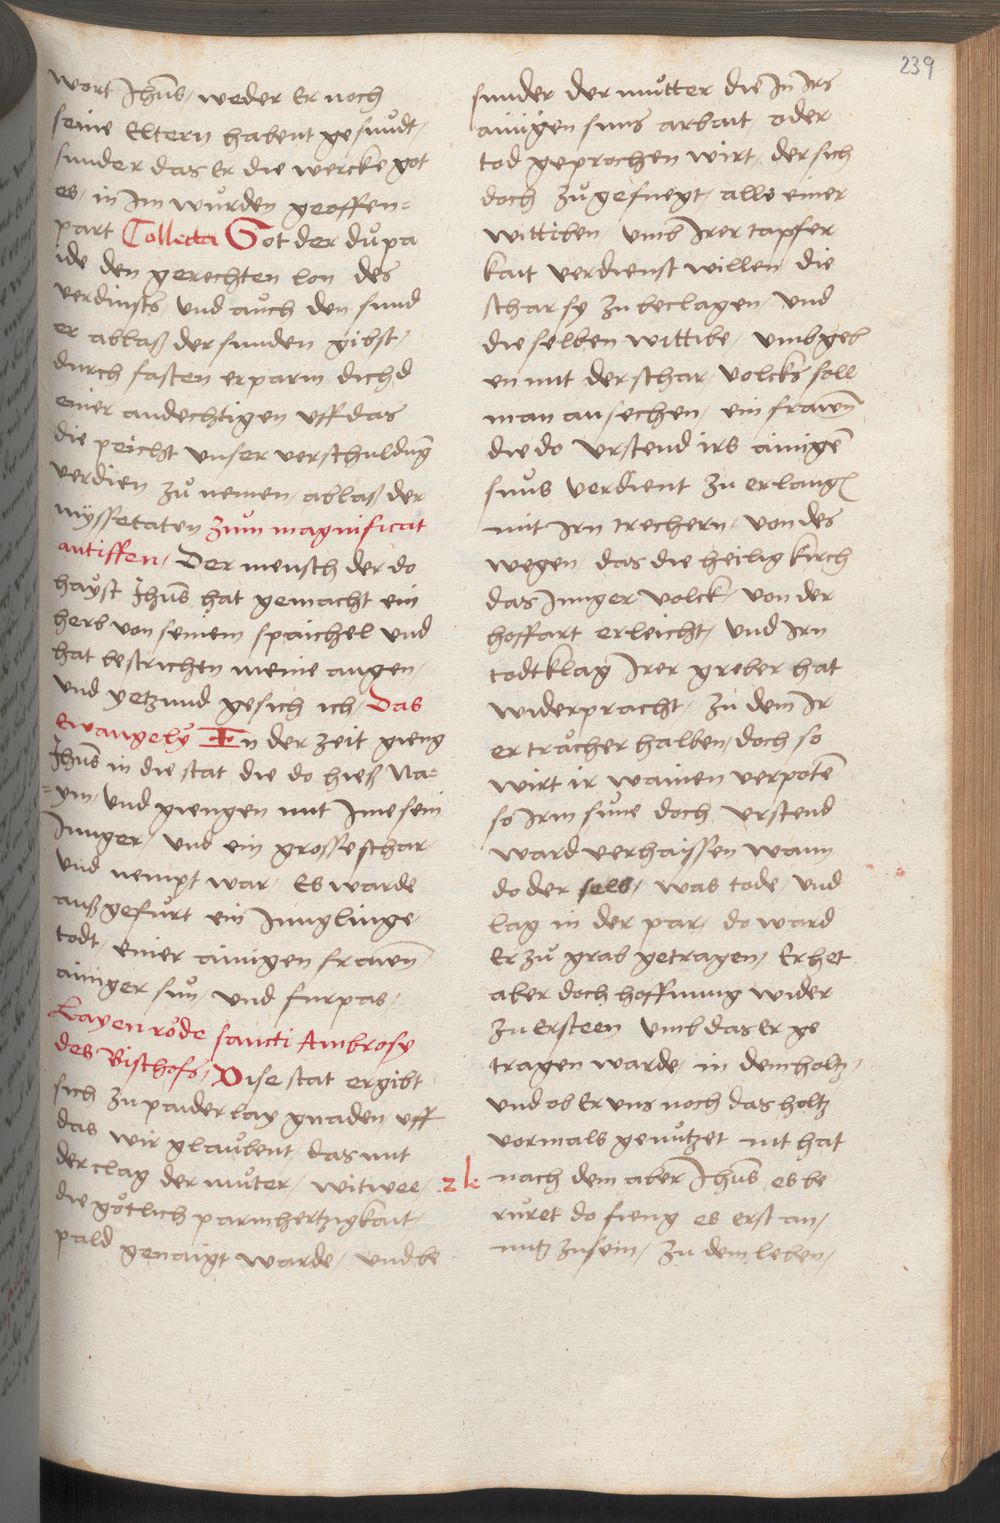 239
wort Jhūs, weder Er noch
seine Eltern habent gesundt,
sunder das Er die wercke got
es, in Jm wůrden geoffen=
part Collecta Got der dů pa
ide den gerechten lon des
verdinsts, Und aůch den sund
er ablaß der sunden gibst,
durch fasten erparm dich d
einer andechtigen uff das
die peicht unser verschuldūg
verdien zů nemen, ablaß der
myssetaten zům magnificat
antiffen, Der mensch der do
haÿst Jhūs hat gemacht ein
herb von seinem spaichel und
hat bestrichen meine augen,
Und yetzund gesich ich, Das
Ewangelÿ In der zeit gieng
Jhūs in die stat die do hieß Na=
=ym, Und giengen mit Jme sein
Junger, Und ein grosse schar,
Und nempt war, Es warde
auß gefůrt ein Junglinge,
todt, einer ainigen frawen̄
ainiger sůn, Und furpas,
Layen röde sancti Ambrosy
des Bischofs, Dise stat ergibt
sich zu paider lay gnaden uff
das wir glaůbent, das mit
der clag der můter, witwee,
die götlich parmhertzigkait,
pald genaigt warde, Und be
sunder der můtter die Jn Jrs
ainigen suns arbait, oder
tod geprochen wirt, der sich
doch zů gefuegt, alls einer
wittiben, Umb Jrer tapfer
kait verdienst willen die
schar sy zu beclagen, Und
die selben wittibe, Umbgeb
en mit der schar, Volcks soll
man ansechen, ein frawen̄
die do Urstend irs ainigē
suns verdient zu erlangē
mit Jrn trechern, Von des
wegen das die heilig kirch
das Junger volck, Von der
hoffart erleicht, Und Jrn
todtklag Jrer greber hat
widerpracht, zu dem Jr
er trächer halben, doch so
wirt ir wainen verpotē
so Jrm sune doch Urstend
ward verhaissen wann
do der selb, was tode, Und
lag in der par, do ward
Er zů grab getragen, Er het
aber doch hoffnung wider
zu Ersteen Umb das Er ge
tragen warde, in dem holtz,
Und ob Er uns noch das holtz
vormals genůtzet nit hat
nach dem aber Jhūs es be
růret do fieng es erst an,
nutz zu sein, zu dem leben,